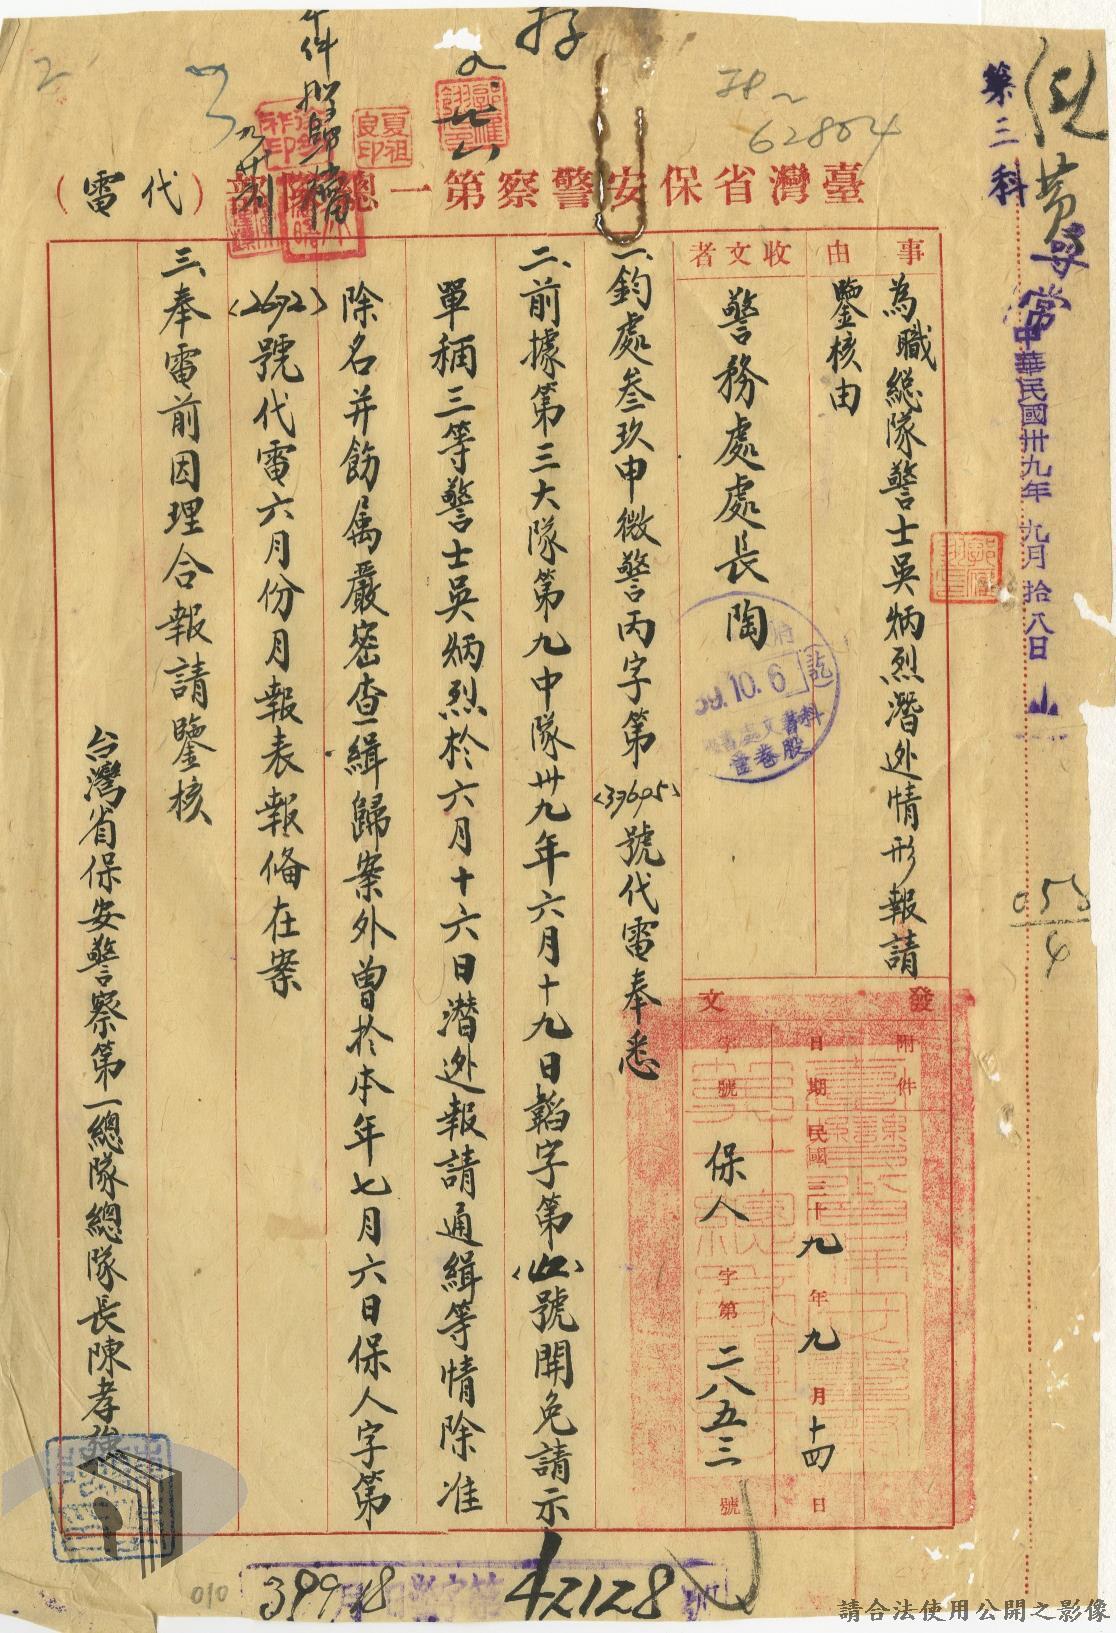 存
件照歸檔
62804
第三科
尋常
中華民國卅九年九月拾八日
臺灣省保安警察第一總隊部（代電）
事由
為職總隊警士吳炳烈潛逃情形報請
鑒核由
收文者
警務處處長陶
發文
附件
日期 民國三十九年九月十四日
字號 保人字第二八五三號
39.10.6
一、鈞處叁玖申微警丙字第(33695)號代電奉悉
二、前據第三大隊第九中隊卅九年六月十九日韜字第 號開免請示
單稱三等警士吳炳烈於六月十六日潛逃報請通緝等情除准
除名并飭属嚴密查緝歸案外曾於本年七月六日保人字第
(2692)號代電六月份月報表報備在案
三、奉電前因理合報請鑒核
台灣省保安警察第一總隊總隊長陳孝強
010
42128
請合法使用公開之影像